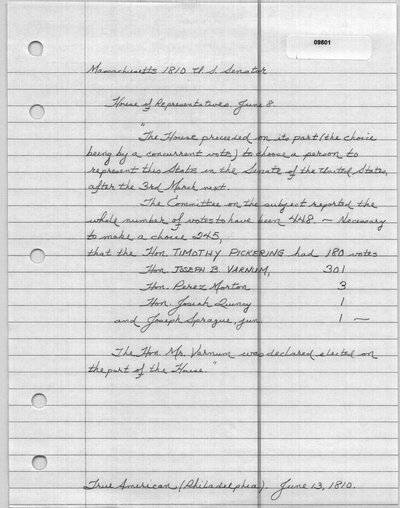 09801
Massachusetts 1810 U.S. Senator
House of Representatives. June 8.
"The House preceeded on its part (the choice
being by a concurrent vote) to choose a person to
represent this State in the Senate of the United States,
after the 3rd March next.
The Committee on the subject reported the
whole number of votes to have been 448. — Necessary
to make a choice 245,
that the Hon. TIMOTHY PICKERING had 180 votes
Hon. JOSEPH B. VARNUM, 301
Hon. Perez Morton 3
Hon. Josiah Quincy 1
and Joseph Sprague, jun. 1 —
The Hon. Mr. Varnum was declared elected on
the part of the House."
True American (Philadelphia). June 13, 1810.